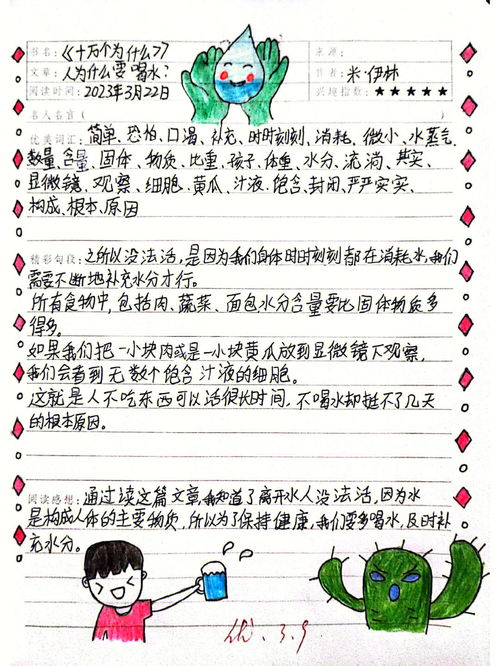 书名：《十万个为什么》
来源：
文章：人为什么要喝水？
作者：米·伊林
阅读时间：2023年3月22日
兴境指数：★★★★★
名人名言（ ）
优美词汇：简单、恐怕、口渴、补充、时时刻刻、消耗、微小、水蒸气、
数量、含量、固体、物质、比重、孩子、体重、水分、流淌、其实、
显微镜、观察、细胞、黄瓜、汁液、饱含、封闭、严严实实、
构成、根本、原因
精彩句段：之所以没法活，是因为我们身体时时刻刻都在消耗水，我们
需要不断地补充水分才行。
所有食物中，包括肉、蔬菜、面包水分含量要比固体物质多
得多。
如果我们把一小块肉或是一小块黄瓜放到显微镜下观察，
我们会看到无数个饱含汁液的细胞。
这就是人不吃东西可以活很长时间，不喝水却挺不了几天
的根本原因。
阅读感想：通过读这篇文章，我知道了离开水人没法活，因为水
是构成人体的主要物质，所以为了保持健康，我们要多喝水，及时补
充水分。
优.3.9